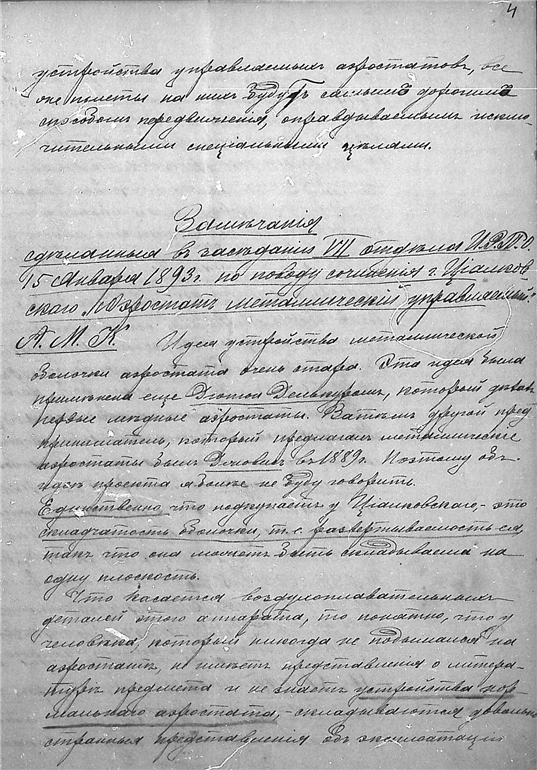 4
устройства управляемыхъ аэростатовъ, все
же полеты на нихъ будутъ слишкомъ дорогимъ
способомъ передвиженія, оправдываемымъ исклю-
чительными спеціальными цѣлями.
Замѣчанія
сдѣланныя въ засѣданіи VII отдѣла И.Р.Т.О.
15 Января 1893 г. по поводу сочиненія г. Ціолков-
скаго "Аэростатъ металлическій управляемый"
А. М. К. Идея устройства металлической
оболочки аэростата очень стара. Эта идея была
примѣнена еще Дюпюи Делькуромъ, который дѣлалъ
первые мѣдные аэростаты. Затѣмъ другой пред
приниматель, который предлагалъ металлическіе
аэростаты былъ въ 1889 г. Поэтому объ
идеѣ проекта я больше не буду говорить.
Единственно, что подкупаетъ у Ціолковскаго,- это
складчатость оболочки, т.е. развертываемость ея,
такъ что она можетъ быть складываема на
одну плоскость.
Что касается воздухоплавательныхъ
деталей этого аппарата, то понятно, что у
человѣка, который никогда не подымался на
аэростатѣ, не имѣетъ представленія о литера-
турѣ предмета и не знаетъ устройства нор
мальнаго аэростата,- складываются довольно
странныя представленія объ эксплоатаціи